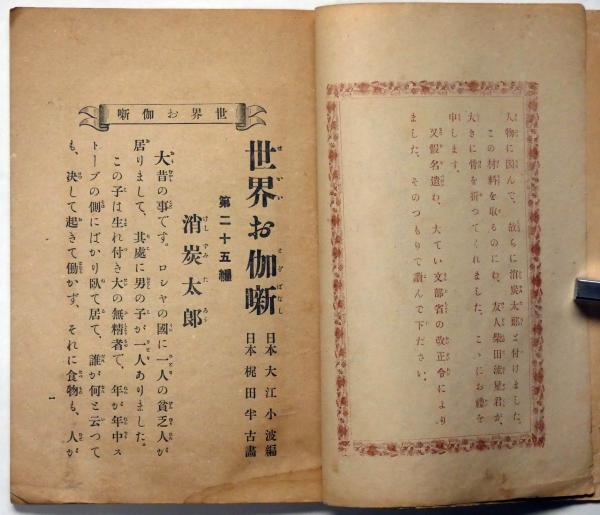 人物に因んで、故らに消炭太郎と付けました。
この材料を取るのにわ、友人柴田流星君が、
大きに骨を折つてくれました。こゝにお禮を
申します。
又假名遣わ、大てい文部省の改正令により
ました、そのつもりで讀んで下ださい。
世界お伽噺
世界お伽噺
せかい とぎばなし
第二十五編
日本 大江小波編
日本 梶田半古畵
消炭太郎
けしずみたろう
大昔の事です。ロシヤの國に一人の貧乏人が
居りまして、其處に男の子が一人ありました。
この子は生れ付き大の無精者で、年が年中ス
トーブの側にばかり臥て居て、誰が何と云つて
も、決して起きて働かず、それに食物も、人が
一